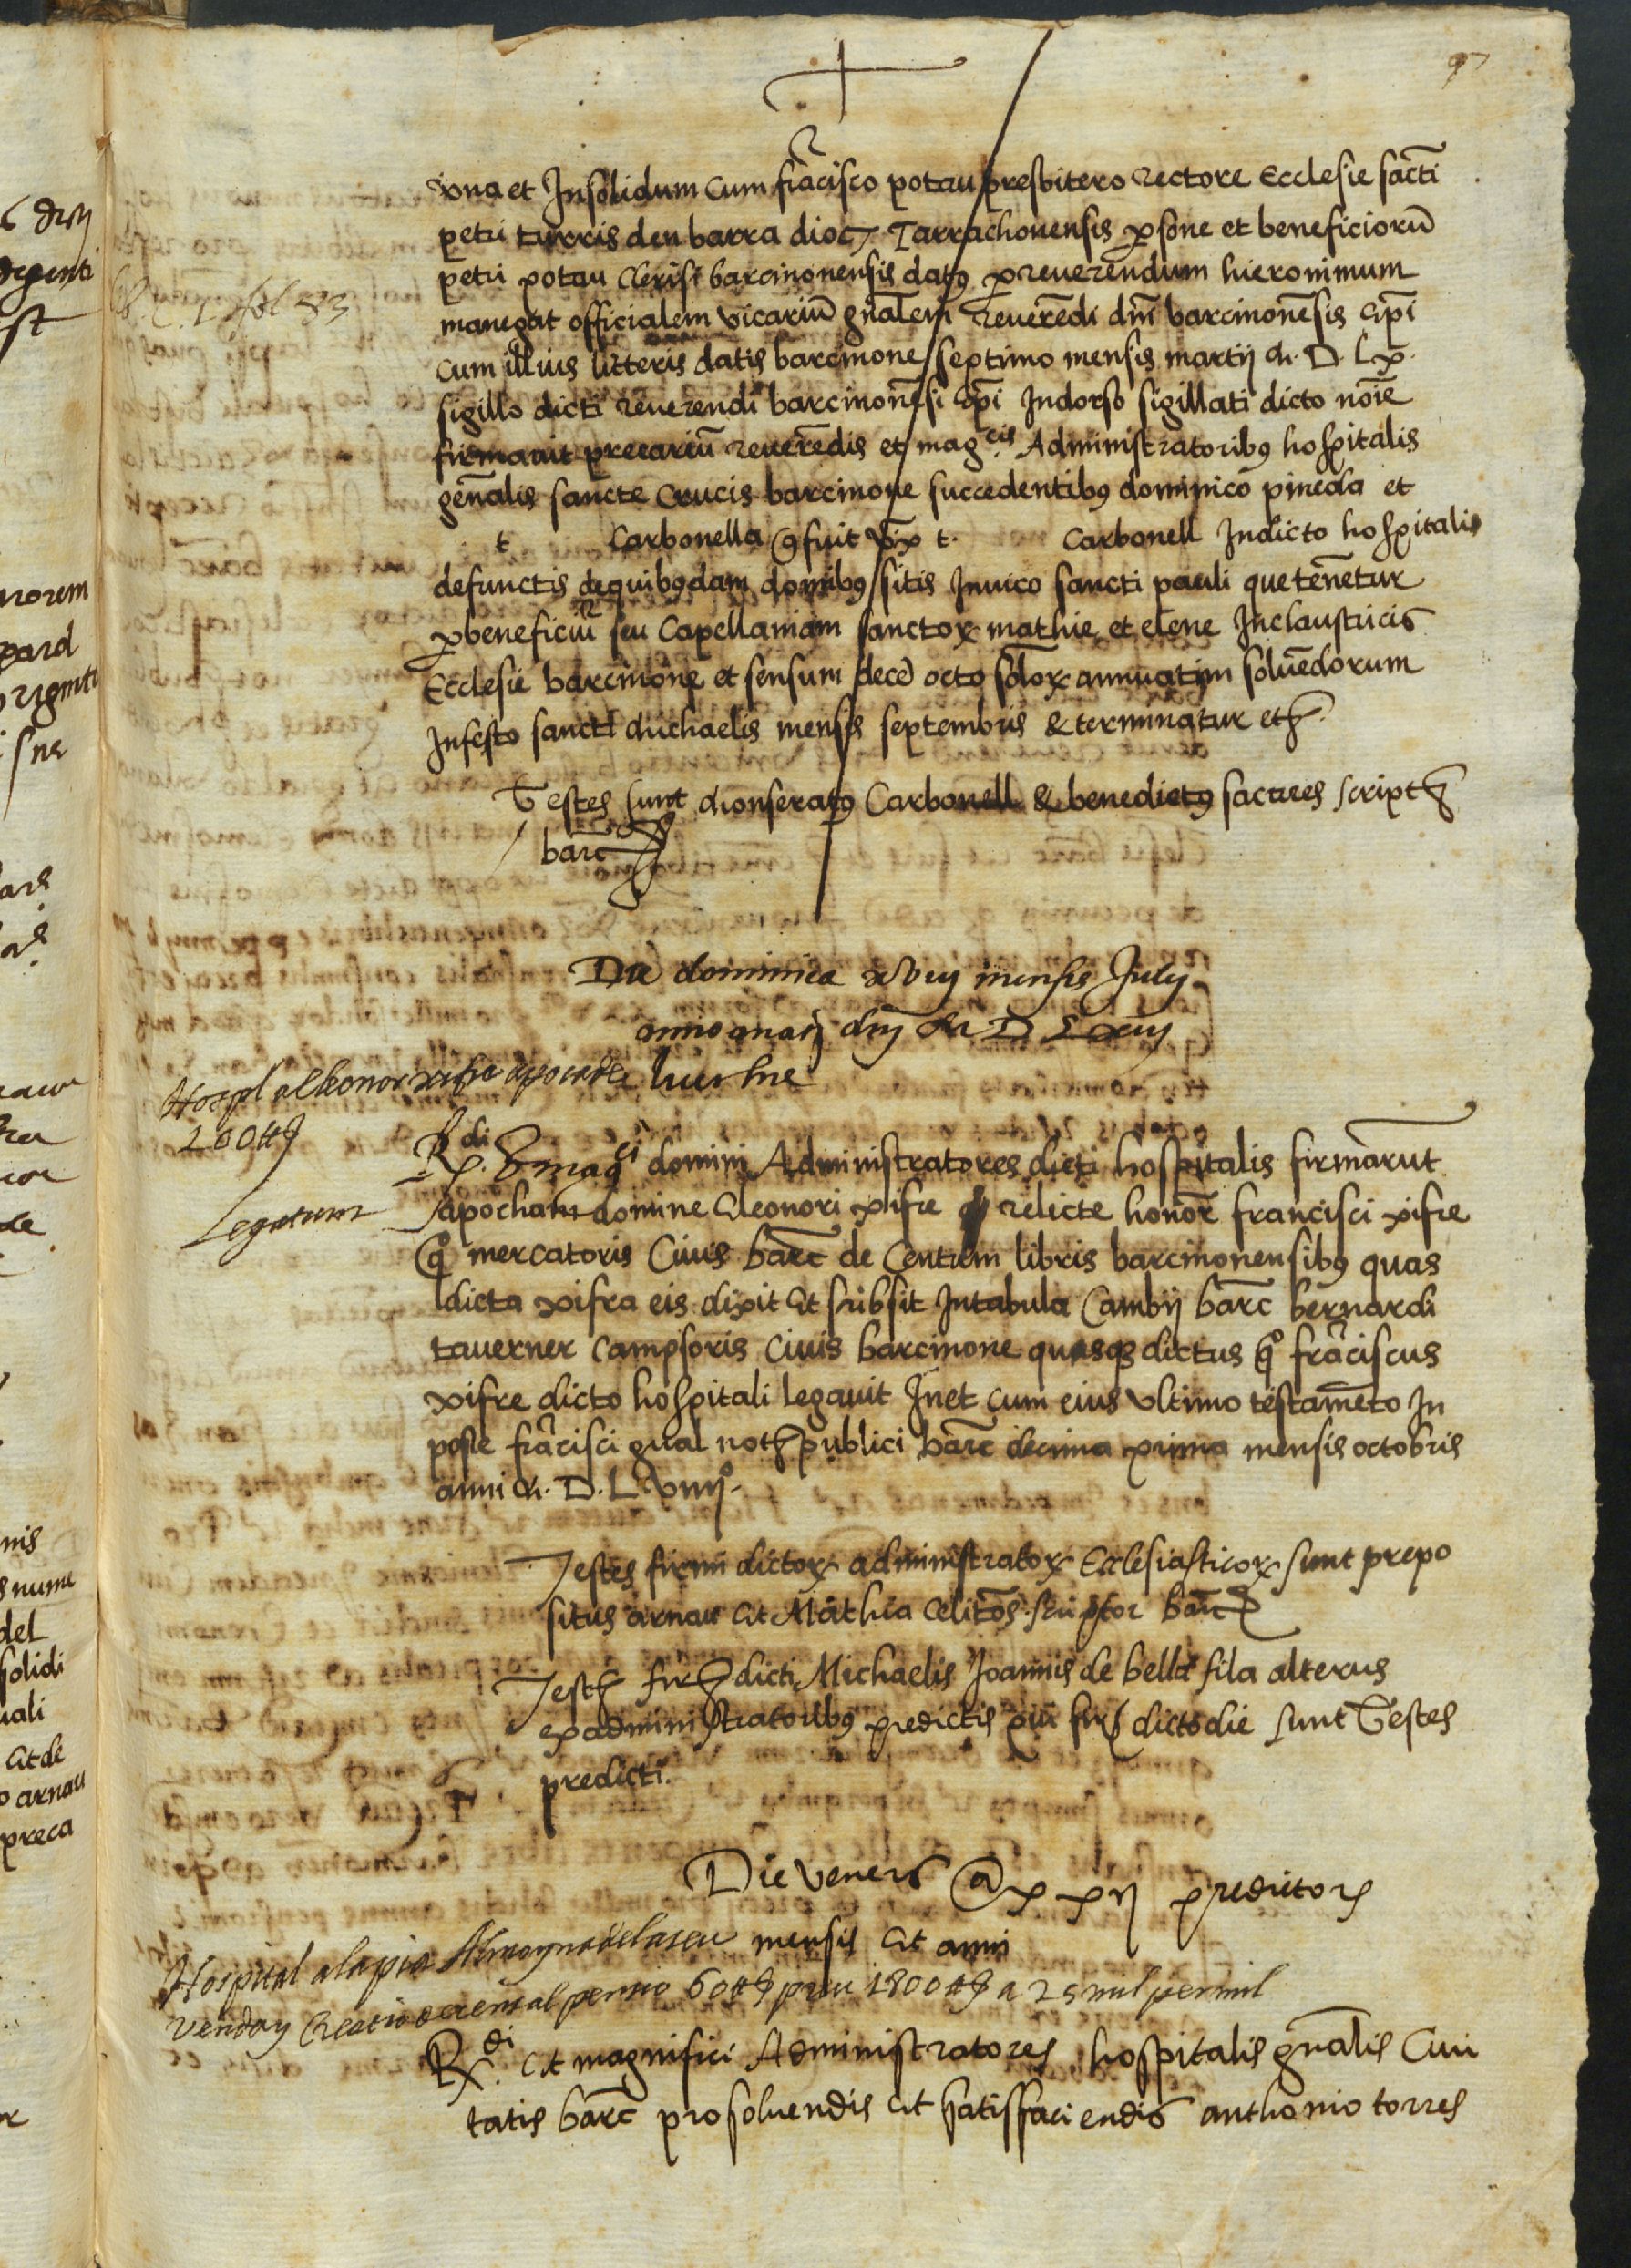 97
una et Insolidum cum frãcisco potau presbitero rectore Ecclesie sãcti
petri turris den barra dioc Tarrachonensis psone et beneficiorũ
petri potau clerisi barcinonensis datus p reuerendum hieronimum
manegat officialem vicariũ gñalem reuerẽdi dñi barcinonẽsis epĩ
cum illius litteris datis barcinone septimo mensis martij M. D. Lx.
sigillo dicti reuerendi barcinonẽsi epĩ Indorso sigillati dicto noĩe
firmauit precariũ reuerẽdis et mag.cis Administratoribus hospitalis
geñalis sancte crucis barcinone succedentibus dominico pineda et
t Carbonella q fuit vx t. Carbonell Indicto hospitalis
defunctis de quibusdam domibus sitis Inuico sancti pauli que tenẽtur
p beneficiũ seu Capellaniam sanctor mathie et elene Inclaustricis
Ecclesie barcinone et sensum decẽ octo solor annuatim soluẽdorum
Infesto sancti Michaelis mensis septembris & terminatur etc.
Testes sunt Monseratus Carbonell & benedictus sacrres script
barc
Die dominica xviij mensis July
anno a natt dñj M D Lxiij
Hospl a Elleonor xifra apoca de
100 ₶
huershe
Legatum
R.di & mag.ci domini Administratores dicti hospitalis firmarũt
apocham domine Eleonori xifre relicte honor francisci xifre
q° mercatoris Ciuis barc de Centum libris barcinonensibus quas
dicta xifra eis dixit et scribsit Intabula Cambij barc bernardi
tauerner campsoris Ciuis barcinone quasqs dictus q° frãciscus
xifre dicto hospitali legauit In et cum eius vltimo testamẽto In
posse frãcisci gual not publici barc decima prima mensis octobris
anni M. D. L viiij°.
Testes firmi dictor administrator Ecclesiasticor sunt prepo
situs arnau et Mathia scriptor barc
Test fir dicti Michaelis Joannis de bella fila alterus
ex administratoribus predictis qui fir dicto die sunt Testes
predicti.
Die veneris xxij predictors
mensis et anni
Hospital a la pia Almoyna de la seu
venda y Creatio de censal pensio 60 ₶ preu 1800 ₶ a 25 mil per mil
R.di et magnifici Administratores hospitalis gñalis Ciui
tatis barc pro soluendis et satisffaciendis anthonio torres